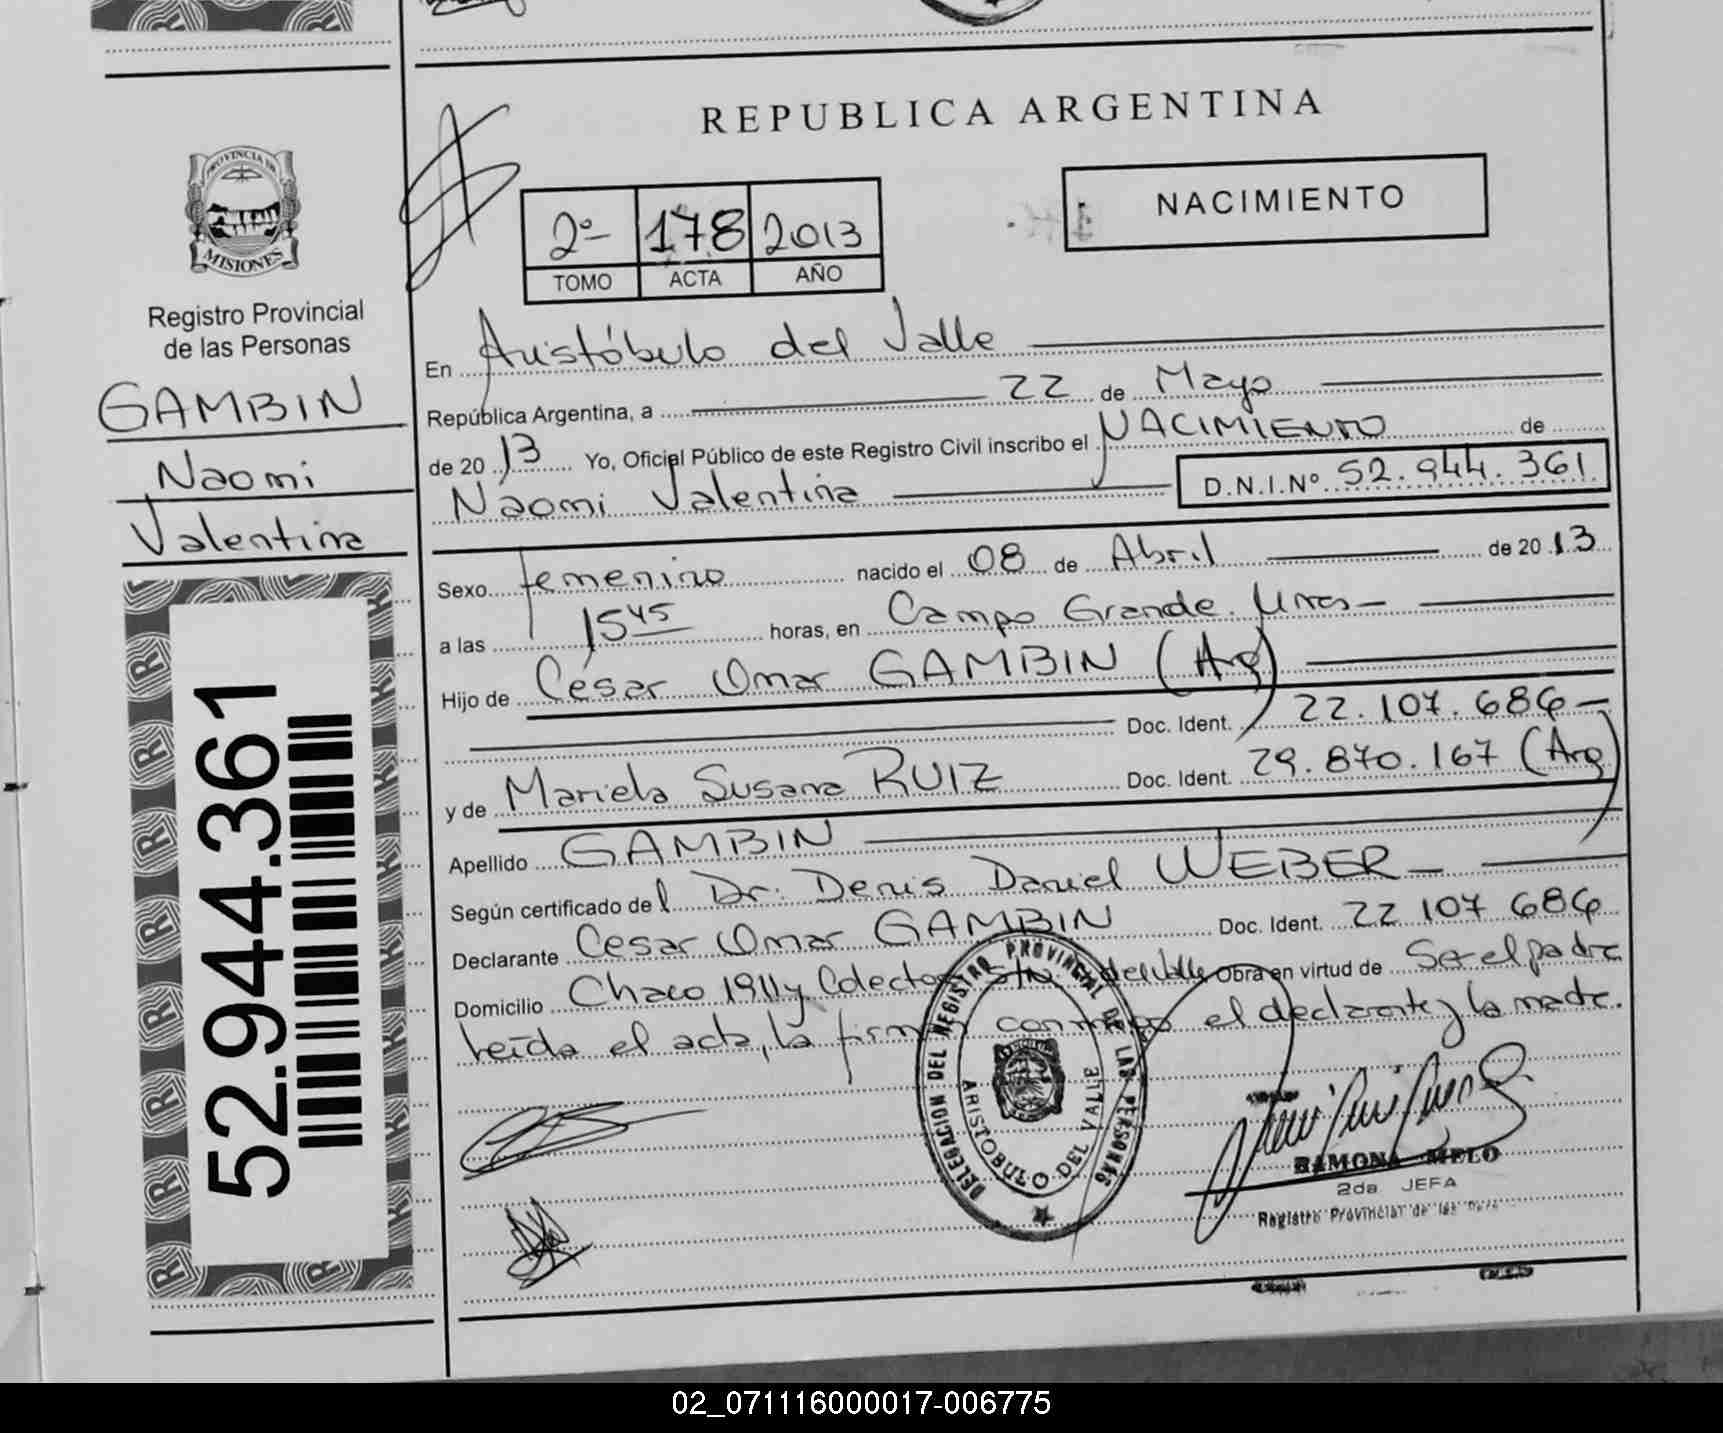 PROVINCIA DE
MISIONES
Registro Provincial
de las Personas
GAMBIN
Naomi
Valentina
52.944.361
REPUBLICA ARGENTINA
NACIMIENTO
2º 178 2013
TOMO ACTA AÑO
En Aristóbulo del Valle
República Argentina, a 22 de Mayo
de 20 13 Yo, Oficial Público de este Registro Civil inscribo el NACIMIENTO de
Naomi Valentina D.N.I.Nº 52.944.361
Sexo femenino nacido el 08 de Abril de 20 13
a las 15 45 horas, en Campo Grande. Mnes
Hijo de César Omar GAMBIN (Arg)
Doc. Ident. 22.107.686
y de Mariela Susana RUIZ Doc. Ident. 29.870.167 (Arg)
Apellido GAMBIN
Según certificado del Dr. Denis Daniel WEBER
Declarante Cesar Omar GAMBIN Doc. Ident. 22 107 686
Domicilio Chaco 1911 y Colectora S/N. del Valle Obra en virtud de Ser el padre
leída el acta, la firman conmigo el declarante y la madre.
DELEGACION DEL REGISTRO PROVINCIAL DE LAS PERSONAS
ARISTOBULO DEL VALLE
RAMONA MELO
2da JEFA
Registro Provincial de las
02_071116000017-006775